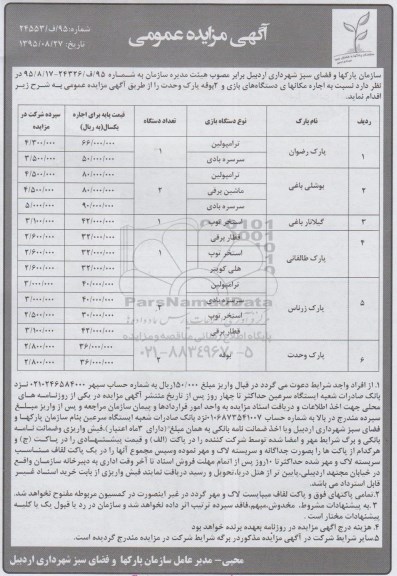 آگهی مزایده عمومی
شماره: ۹۵/ف/۲۴۵۵۳
تاریخ: ۱۳۹۵/۰۸/۲۷
سازمان پارکها و فضای سبز شهرداری اردبیل برابر مصوب هیئت مدیره سازمان به شماره ۹۵/ف/۲۴۳۲۶-۹۵/۸/۱۷ در
نظر دارد نسبت به اجاره مکانهای دستگاه‌های بازی و ۲بوفه پارک وحدت را از طریق آگهی مزایده عمومی به شرح زیر
اقدام نماید.
ردیف نام پارک نوع دستگاه بازی تعداد دستگاه قیمت پایه برای اجاره یکسال(به ریال) سپرده شرکت در مزایده
۱ پارک رضوان ترامپولین ۱ ۶۶/۰۰۰/۰۰۰ ۴/۳۰۰/۰۰۰
سرسره بادی ۵۰/۰۰۰/۰۰۰ ۳/۵۰۰/۰۰۰
۲ یوشلی باغی ترامپولین ۲ ۸۰/۰۰۰/۰۰۰ ۴/۵۰۰/۰۰۰
ماشین برقی ۸۰/۰۰۰/۰۰۰ ۴/۵۰۰/۰۰۰
سرسره بادی ۹۰/۰۰۰/۰۰۰ ۵/۰۰۰/۰۰۰
۳ گیلانار باغی استخر توپ ۱ ۴۲/۰۰۰/۰۰۰ ۳/۱۰۰/۰۰۰
۴ پارک طالقانی قطار برقی ۱ ۳۲/۰۰۰/۰۰۰ ۲/۶۰۰/۰۰۰
استخر توپ ۳۲/۰۰۰/۰۰۰ ۲/۶۰۰/۰۰۰
هلی کوپتر ۳۲/۰۰۰/۰۰۰ ۲/۶۰۰/۰۰۰
۵ پارک زرناس ترامپولین ۴۰/۰۰۰/۰۰۰ ۳/۰۰۰/۰۰۰
سرسره بادی ۴۰/۰۰۰/۰۰۰ ۳/۰۰۰/۰۰۰
استخر توپ ۳۰/۰۰۰/۰۰۰ ۲/۵۰۰/۰۰۰
قطار برقی ۴۲/۰۰۰/۰۰۰ ۳/۱۰۰/۰۰۰
۶ پارک وحدت بوفه ۲ ۳۶/۰۰۰/۰۰۰ ۲/۸۰۰/۰۰۰
۳۶/۰۰۰/۰۰۰ ۲/۸۰۰/۰۰۰
ParsNamadData
پایگاه اطلاع رسانی مناقصه و مزایده
۰۲۱-۸۸۳۴۹۶۷۰-۵
۱. از افراد واجد شرایط دعوت می گردد در قبال واریز مبلغ ۱۵۰/۰۰۰ریال به شماره حساب سپهر ۰۲۱۰۲۴۶۵۸۴۰۰۰ نزد
بانک صادرات شعبه ایستگاه سرعین حداکثر تا چهار روز پس از تاریخ منتشر آگهی مزایده در یکی از روزنامه های
محلی جهت اخذ اطلاعات و دریافت اسناد مزایده به واحد امور قراردادها و پیمان سازمان مراجعه و پس از واریز مبلغ
سپرده مندرج در بالا به شماره حساب ۰۱۰۶۸۷۳۵۴۱۰۰۷ نزد بانک صادرات شعبه ایستگاه سرعین بنام سازمان پارکها و
فضای سبز شهرداری اردبیل ویا اخذ ضمانت نامه بانکی به همان مبلغ (دارای ۳ماه اعتبار)،فیش واریزی وضمانت نامه
بانکی و برگ شرایط مهر و امضا شده توسط شرکت کننده را در پاکت (الف) و قیمت پیشنهادی را در پاکت (ج) و
هرکدام از پاکت ها را بصورت جداگانه و سربسته لاک و مهر نموده وسپس مجموع آنها را در یک پاکت لفاف مناسب
سربسته لاک و مهر شده حداکثر تا ۱۰روز پس از اتمام مهلت فروش اسناد تا آخر وقت اداری به دبیرخانه سازمان واقع
در خیابان مجتهد اردبیلی،پایین تر از هتل دریا،تحویل و رسید دریافت نمایند فیش واریزی از بابت خرید اسناد غیر
قابل استرداد می باشد.
۲.تمامی پاکتهای فوق و پاکت لفاف میبایست لاک و مهر گردد در غیر اینصورت در کمیسیون مربوطه مفتوح نخواهد شد.
۳.به پیشنهادات مشروط، مخدوش،مبهم،فاقد سپرده ترتیب اثر داده نخواهد شد و سازمان در رد یا قبول یک یا کلیه
پیشنهادات مختار است .
۴.هزینه درج آگهی مزایده در روزنامه بعهده برنده خواهد بود
۵.سایر شرایط شرکت در آگهی مزایده مذکوردر برگه شرایط شرکت در مزایده مندرج گردیده است.
محبی- مدیر عامل سازمان پارکها و فضای سبز شهرداری اردبیل